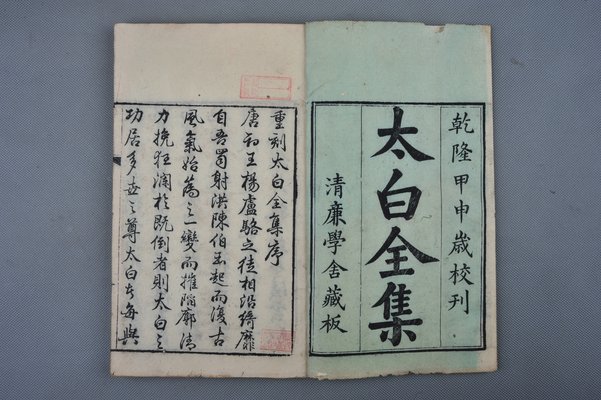 乾隆甲申歲校刊
太白全集
清廉學舍藏板
重刻太白全集序
唐初王楊盧駱之徒相沿綺靡
自吾蜀射洪陳伯玉起而復古
風氣始為之一變而摧陷廓清
力挽狂瀾於既倒者則太白之
功居多世之尊太白者每與